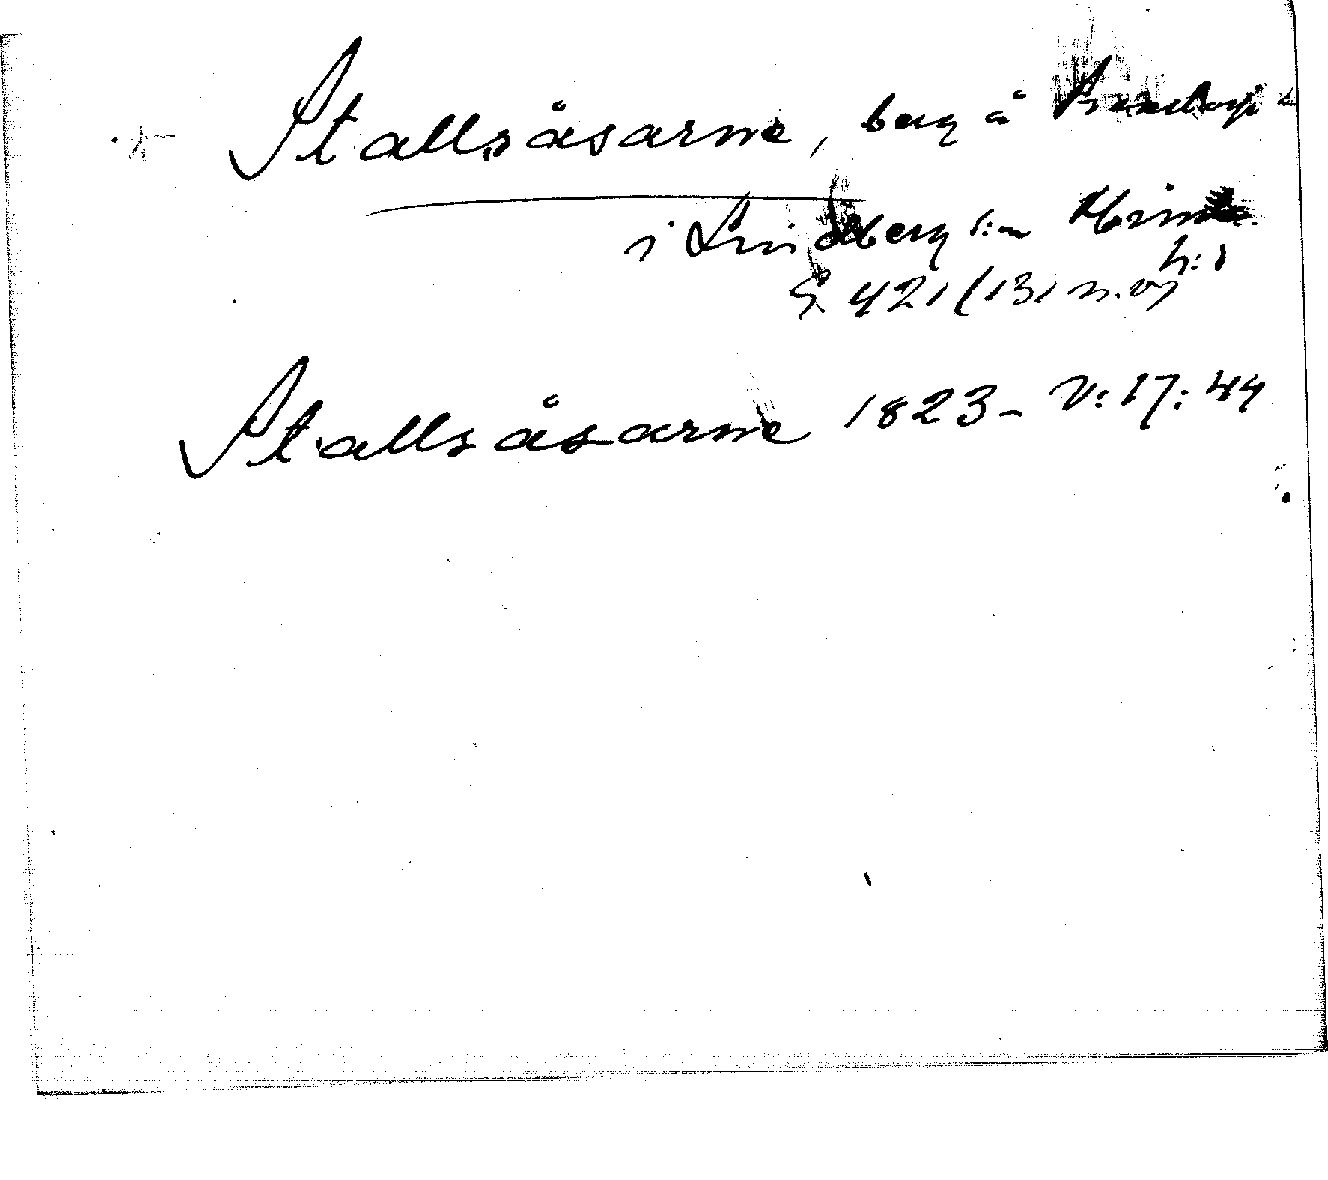 Stallsåsarne, berg å
i Lindberg s:n Himle
h:d
G. 421 (131 n.o.)
Stallsåsarne 1823 – V: 17: 44